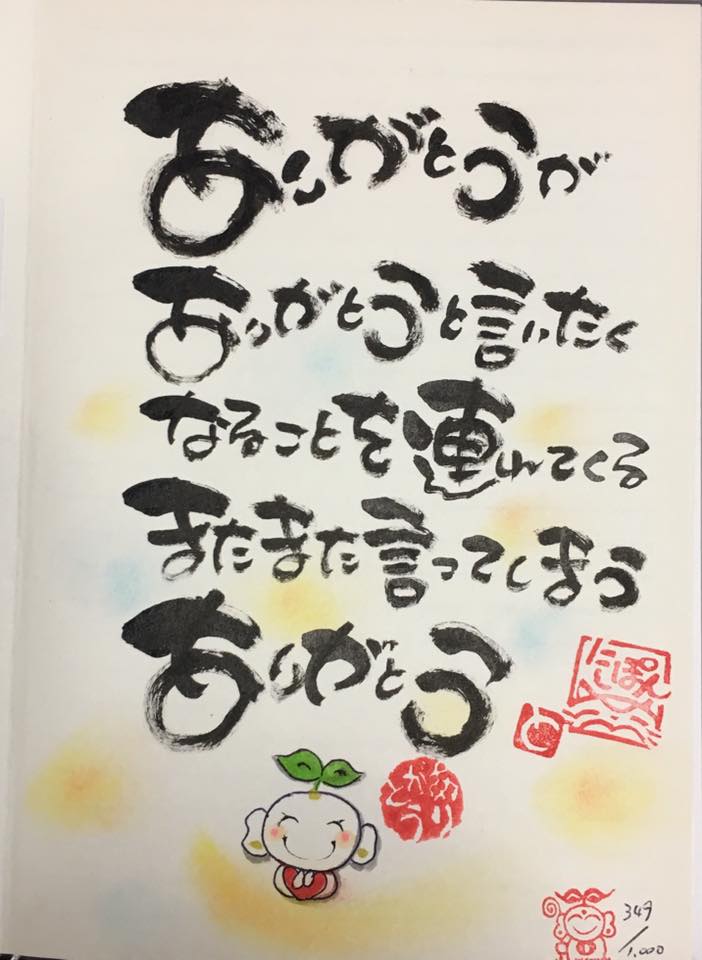 ありがとうが
ありがとうと言いたく
なることを連れてくる
またまた言ってしまう
ありがとう
にぽん
ありがとう
349/1,000